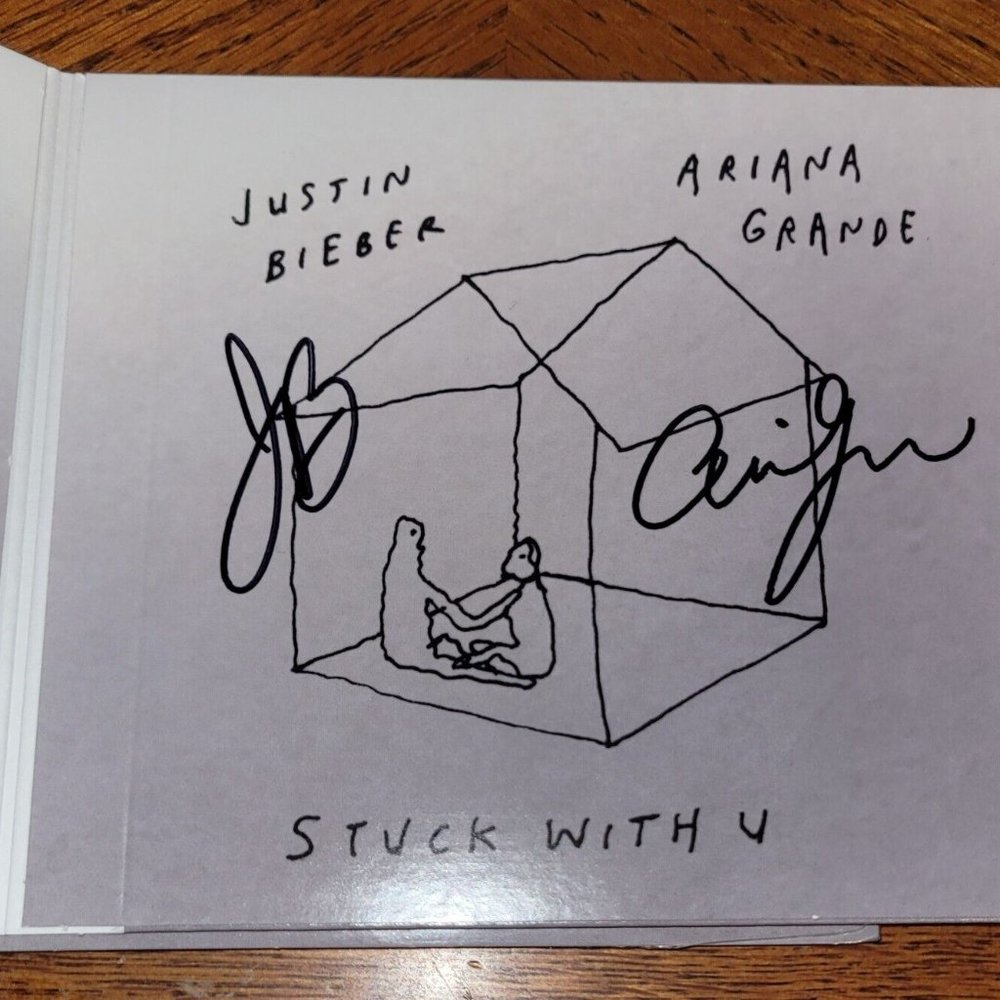 JUSTIN
BIEBER
ARIANA
GRANDE
JB
STUCK WITH U